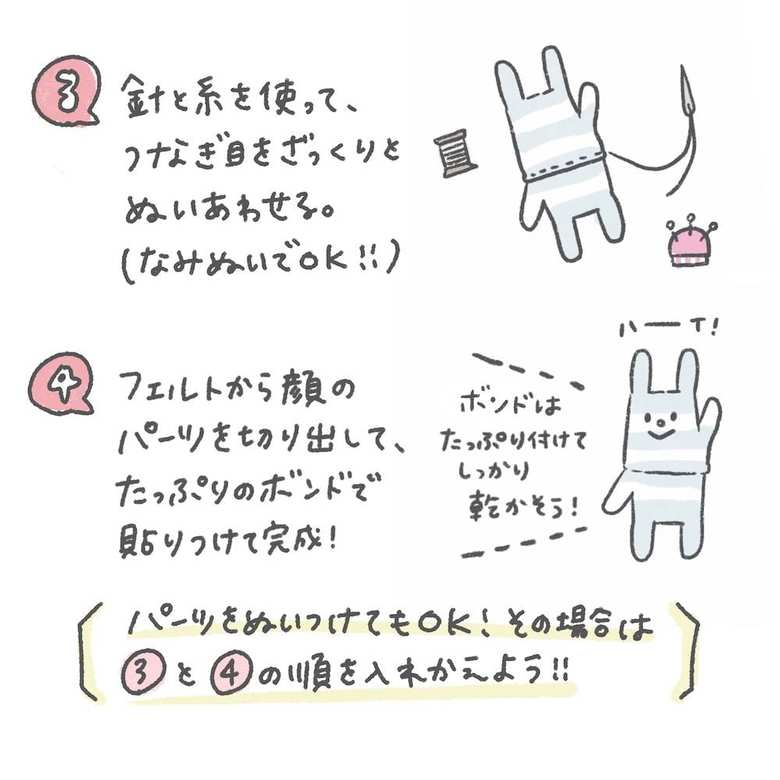 3
針と糸を使って、
つなぎ目をざっくりと
ぬいあわせる。
(なみぬいでOK!!)
4
フェルトから顔の
パーツを切り出して、
たっぷりのボンドで
貼りつけて完成!
ボンドは
たっぷり付けて
しっかり
乾かそう!
ハーイ!
パーツをぬいつけてもOK!その場合は
③と④の順を入れかえよう!!